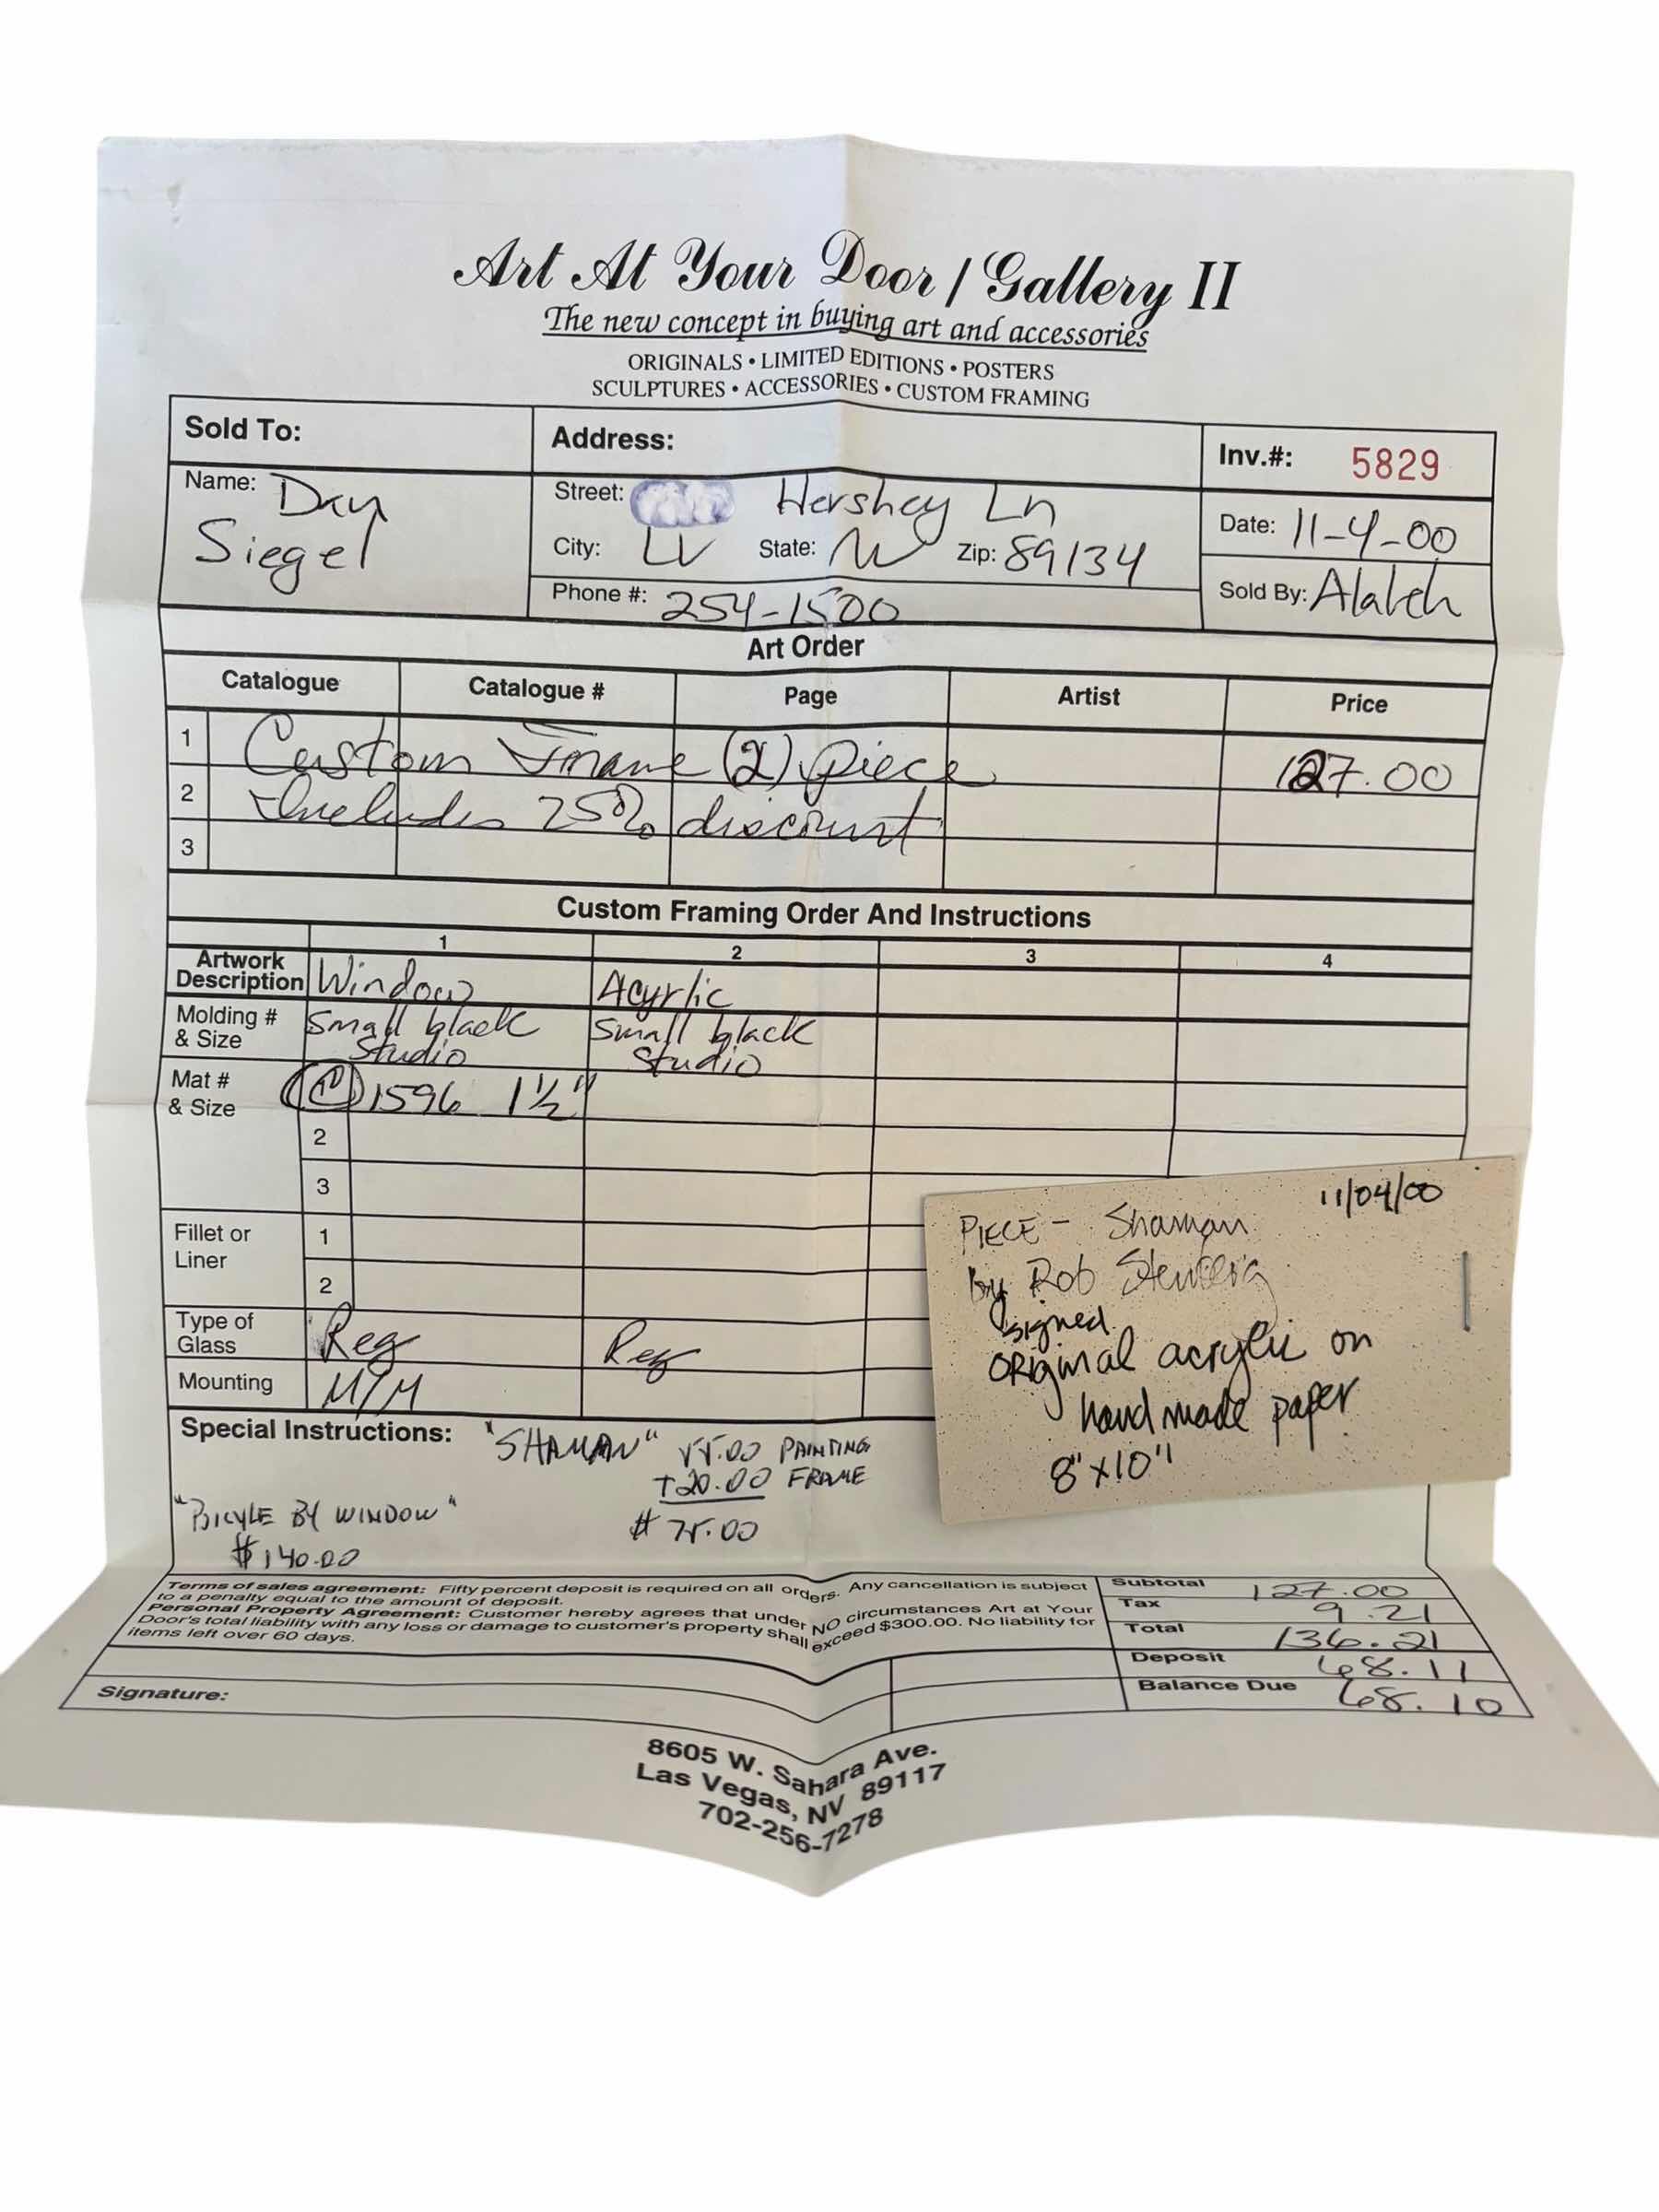 Art At Your Door / Gallery II
The new concept in buying art and accessories
ORIGINALS • LIMITED EDITIONS • POSTERS
SCULPTURES • ACCESSORIES • CUSTOM FRAMING
Sold To: Address: Inv.#: 5829
Name: Dan Siegel
Street: Hershey Ln
City: LV State: NV Zip: 89134
Phone #: 254-1500
Date: 11-4-00
Sold By:
Art Order
Catalogue Catalogue # Page Artist Price
1 Custom Frame (2) piece 127.00
2 Includes 25% discount
3
Custom Framing Order And Instructions
1 2 3 4
Artwork Description Window Acyrlic
Molding # & Size Small black Studio Small black Studio
Mat # & Size 1 1596 1 1/2"
2
3
Fillet or Liner 1
2
Type of Glass Reg Reg
Mounting M/M
Special Instructions: "SHAMAN" 55.00 PAINTING
+20.00 FRAME
$ 75.00
"BICYLE BY WINDOW"
$140.00
11/04/00
PIECE - Shaman
By Rob Stenberg
signed
original acrylic on
hand made paper
8"x10"
Terms of sales agreement: Fifty percent deposit is required on all orders. Any cancellation is subject
to a penalty equal to the amount of deposit.
Personal Property Agreement: Customer hereby agrees that under NO circumstances Art at Your
Door's total liability with any loss or damage to customer's property shall exceed $300.00. No liability for
items left over 60 days.
Subtotal 127.00
Tax 9.21
Total 136.21
Deposit 68.11
Balance Due 68.10
Signature:
8605 W. Sahara Ave.
Las Vegas, NV 89117
702-256-7278